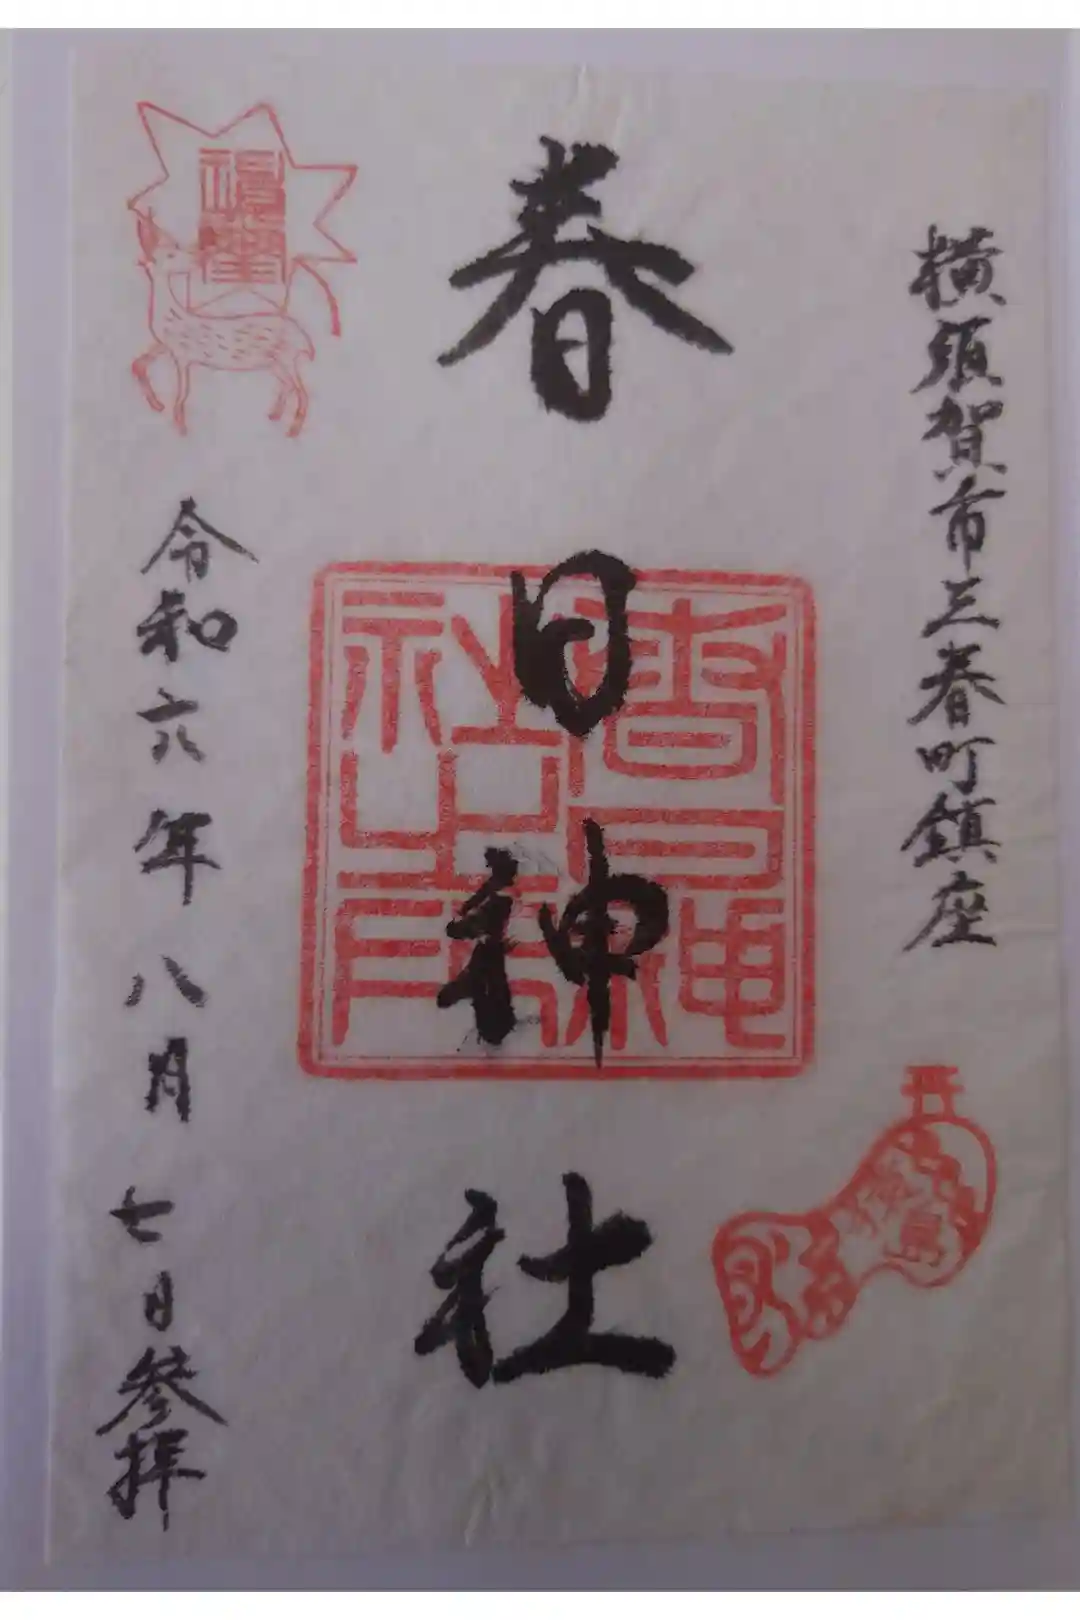 横須賀市三春町鎮座
春日神社
令和六年八月七日参拝
春日神社之印
猿島